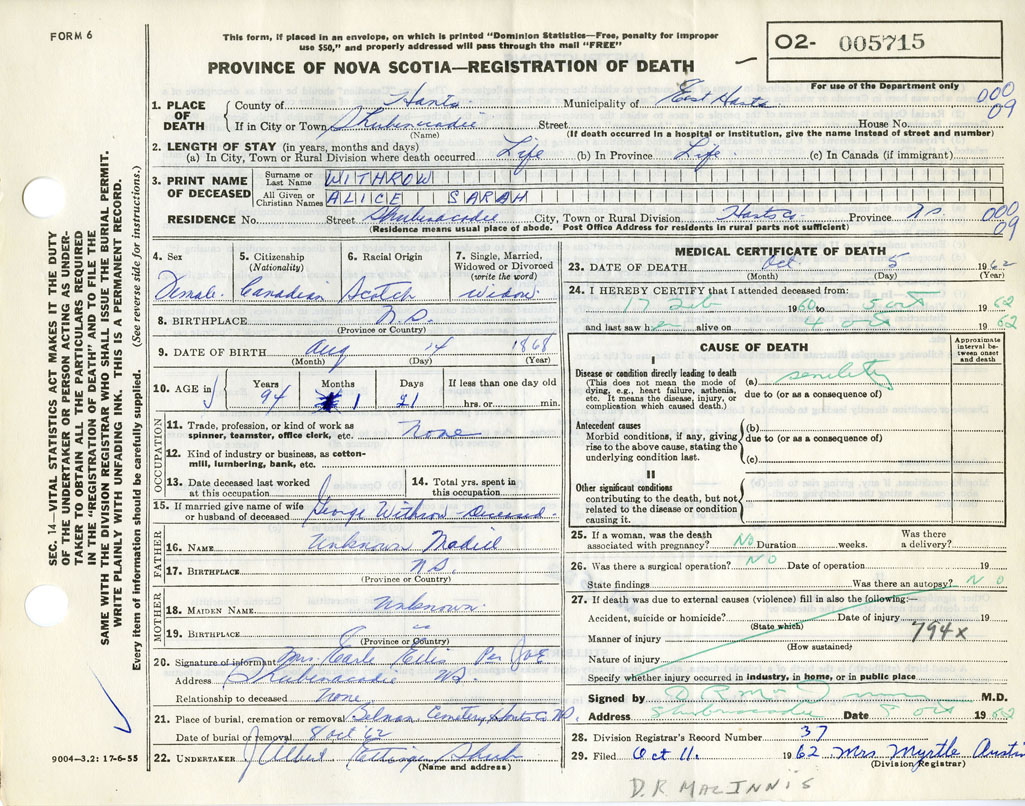 FORM 6
This form, if placed in an envelope, on which is printed "Dominion Statistics—Free, penalty for improper
use $50," and properly addressed will pass through the mail "FREE"
PROVINCE OF NOVA SCOTIA—REGISTRATION OF DEATH
02- 005715
For use of the Department only
000
09
1. PLACE OF DEATH { County of Hants Municipality of East Hants
If in City or Town Shubenacadie Street House No.
(Name) (If death occurred in a hospital or institution, give the name instead of street and number)
2. LENGTH OF STAY (in years, months and days)
(a) In City, Town or Rural Division where death occurred Life (b) In Province Life. (c) In Canada (if immigrant)
3. PRINT NAME OF DECEASED { Surname or Last Name WITHROW
All Given or Christian Names ALICE SARAH
RESIDENCE No. Street Shubenacadie City, Town or Rural Division Hants Co. Province N.S. 000
09
(Residence means usual place of abode. Post Office Address for residents in rural parts not sufficient)
4. Sex
Female
5. Citizenship
(Nationality)
Canadian
6. Racial Origin
Scotch
7. Single, Married,
Widowed or Divorced
(write the word)
Widow
8. BIRTHPLACE N.S.
(Province or Country)
9. DATE OF BIRTH Aug 14 1868
(Month) (Day) (Year)
10. AGE in { Years Months Days If less than one day old
94 1 21 hrs. or min.
OCCUPATION
11. Trade, profession, or kind of work as
spinner, teamster, office clerk, etc. None
12. Kind of industry or business, as cotton-
mill, lumbering, bank, etc.
13. Date deceased last worked
at this occupation
14. Total yrs. spent in
this occupation
15. If married give name of wife
or husband of deceased George Withrow - Deceased
FATHER
16. NAME Unknown Madill
17. BIRTHPLACE N.S.
(Province or Country)
MOTHER
18. MAIDEN NAME Unknown.
19. BIRTHPLACE "
(Province or Country)
20. Signature of informant Mrs. Earle Per
Address Shubenacadie N.S.
Relationship to deceased None
21. Place of burial, cremation or removal Cemetery Hants Co N.S.
Date of burial or removal 8 Oct 62
22. UNDERTAKER J Albert Ettinger Shub
(Name and address)
MEDICAL CERTIFICATE OF DEATH
23. DATE OF DEATH Oct. 5 1962
(Month) (Day) (Year)
24. I HEREBY CERTIFY that I attended deceased from:
17 Feb 1960 to 5 oct 1962
and last saw her alive on 4 oct 1962
CAUSE OF DEATH
Approximate
interval be-
tween onset
and death
I
Disease or condition directly leading to death
(This does not mean the mode of
dying, e.g., heart failure, asthenia,
etc. It means the disease, injury, or
complication which caused death.)
(a) senility
due to (or as a consequence of)
Antecedent causes
Morbid conditions, if any, giving
rise to the above cause, stating the
underlying condition last.
(b)
due to (or as a consequence of)
(c)
II
Other significant conditions
contributing to the death, but not
related to the disease or condition
causing it.
25. If a woman, was the death
associated with pregnancy? NO Duration weeks. Was there
a delivery?
26. Was there a surgical operation? NO Date of operation 19
State findings Was there an autopsy? NO
27. If death was due to external causes (violence) fill in also the following:—
Accident, suicide or homicide? Date of injury 19
(State which)
794x
Manner of injury
(How sustained)
Nature of injury
Specify whether injury occurred in industry, in home, or in public place
Signed by M.D.
Address Shubenacadie Date 8 oct 1962
28. Division Registrar's Record Number 37
29. Filed Oct 11. 1962 Mrs. Myrtle Austin
(Division Registrar)
D.R MACINNIS
9004—3.2: 17-6-55
SEC. 14—VITAL STATISTICS ACT MAKES IT THE DUTY
OF THE UNDERTAKER OR PERSON ACTING AS UNDER-
TAKER TO OBTAIN ALL THE PARTICULARS REQUIRED
IN THE "REGISTRATION OF DEATH" AND TO FILE THE
SAME WITH THE DIVISION REGISTRAR WHO SHALL ISSUE THE BURIAL PERMIT.
WRITE PLAINLY WITH UNFADING INK. THIS IS A PERMANENT RECORD.
Every item of information should be carefully supplied. (See reverse side for instructions.)